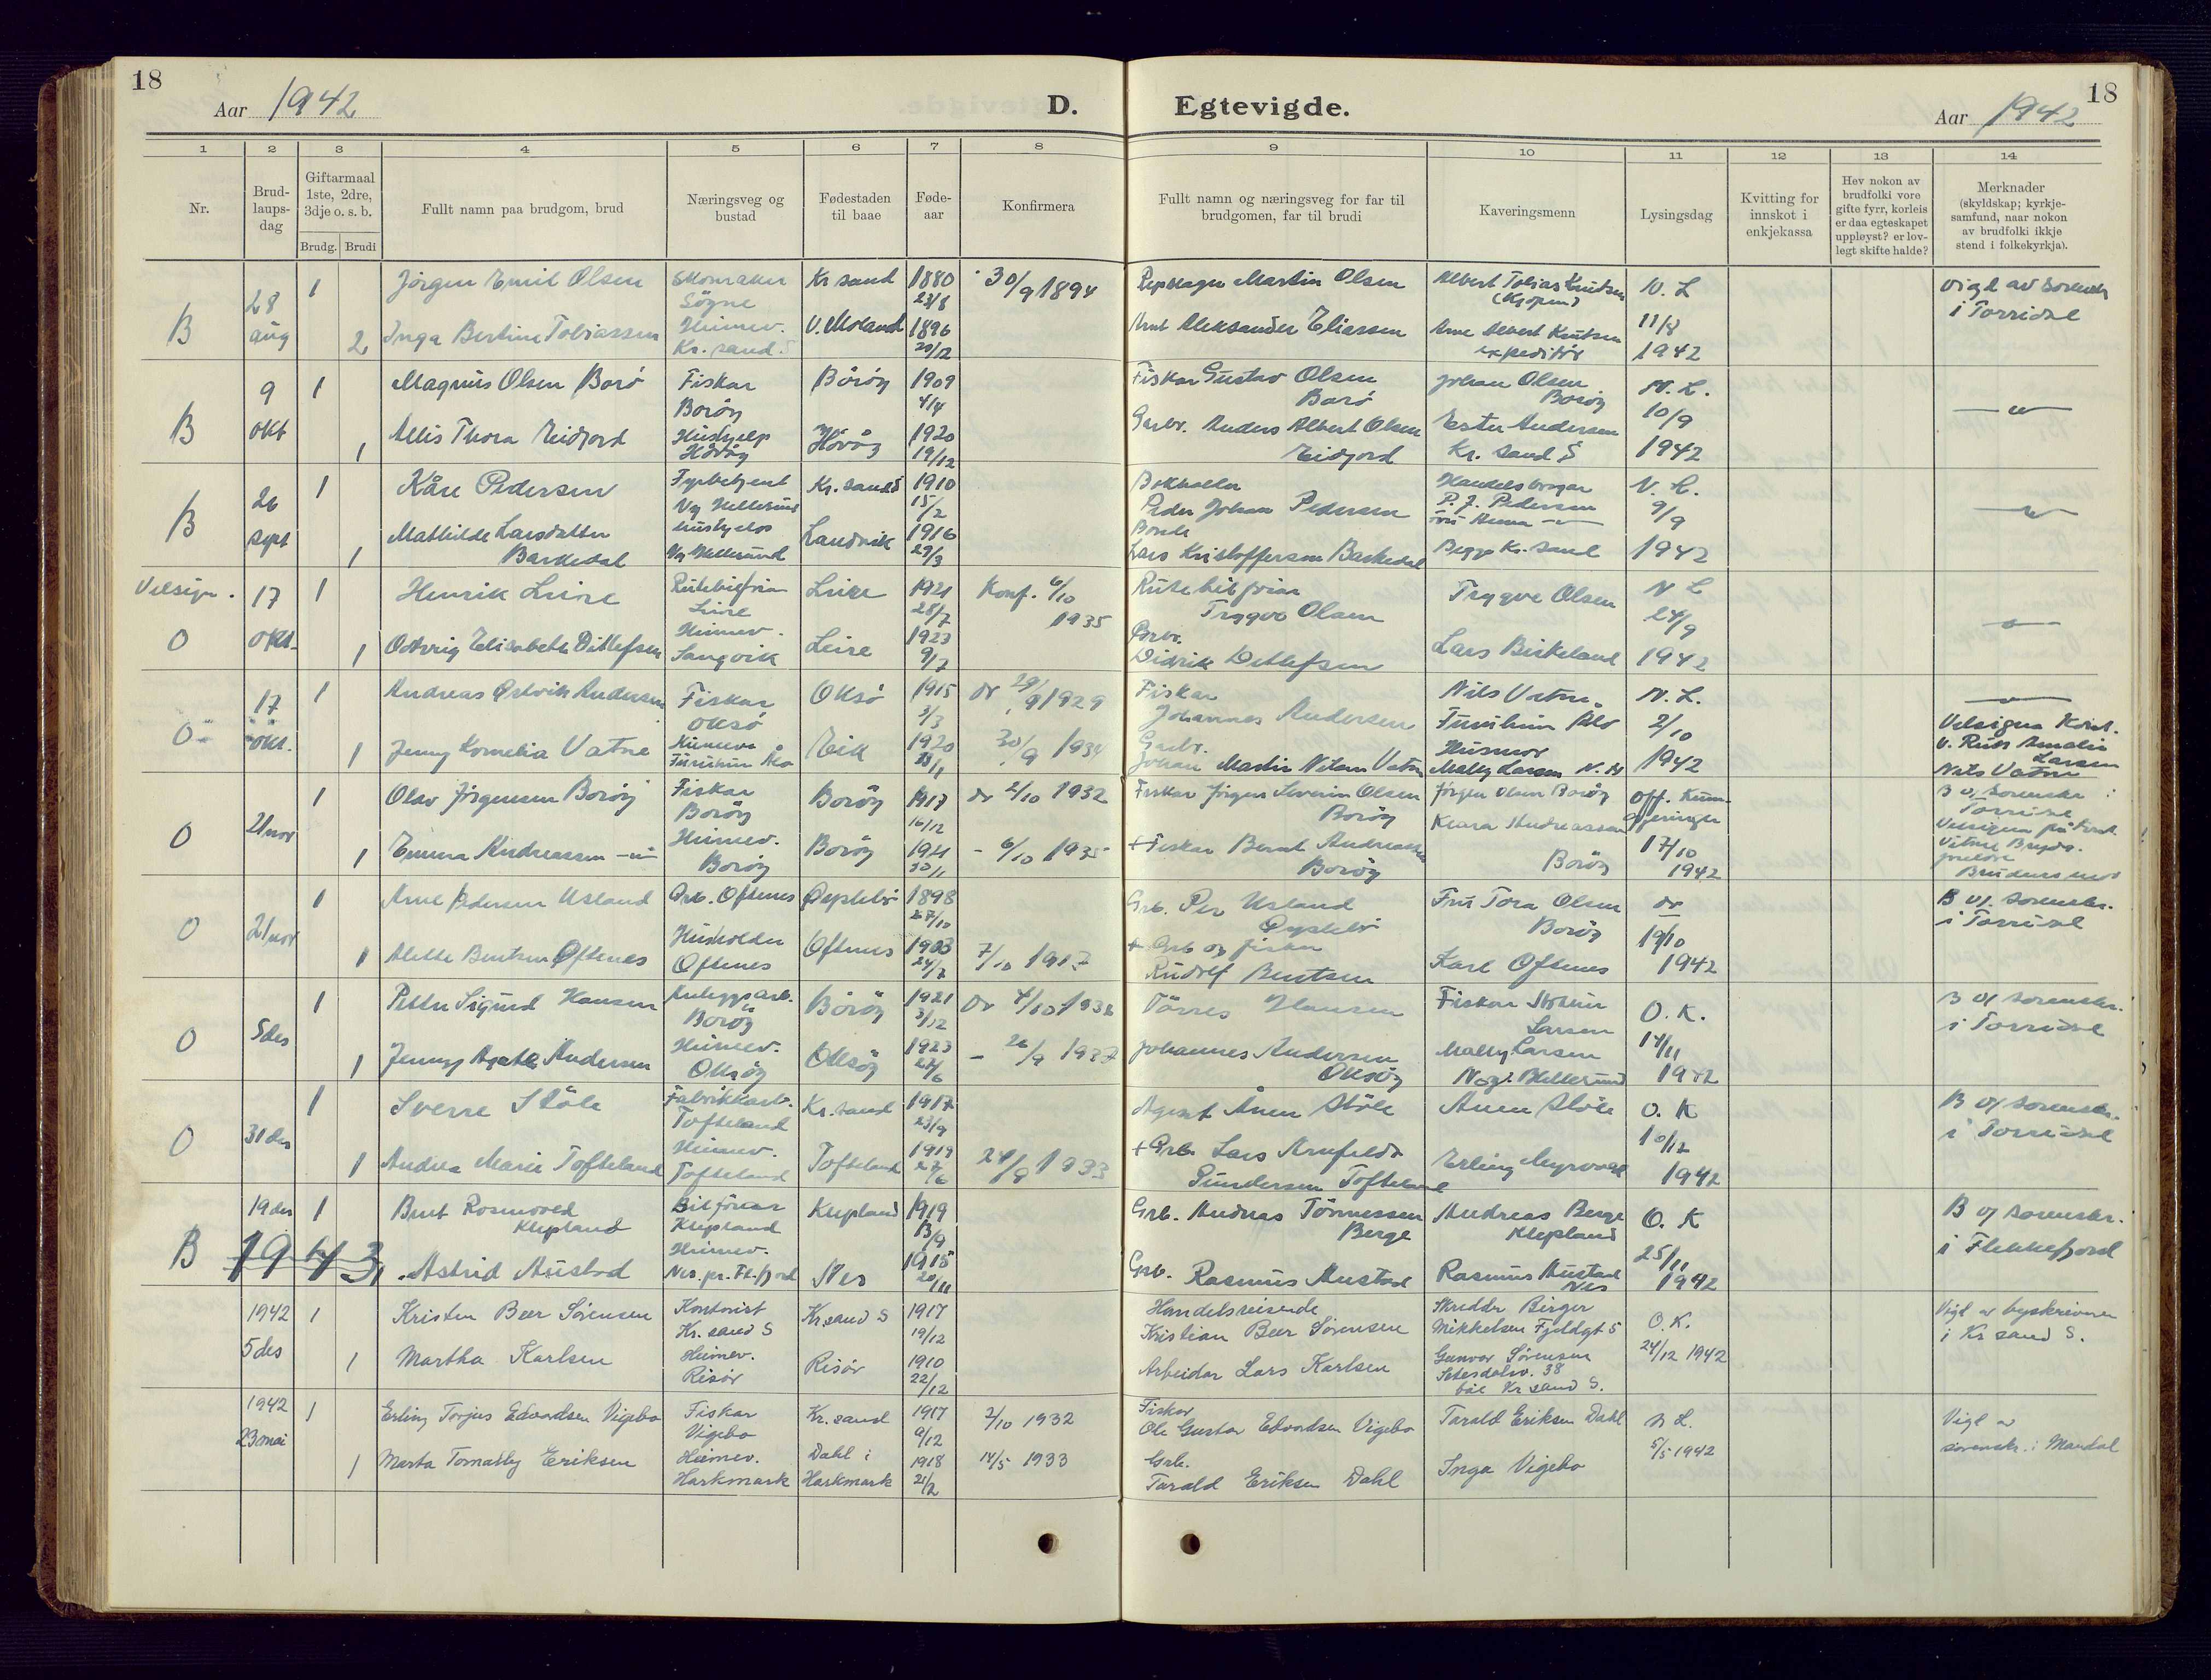 18
Aar 1942
D. Egtevigde.
Aar 1942
18
1 2 3 4 5 6 7 8 9 10 11 12 13 14
Nr.
Brud-
laups-
dag
Giftarmaal
1ste, 2dre,
3dje o. s. b.
Brudg. Brudi
Fullt namn paa brudgom, brud
Næringsveg og
bustad
Fødestaden
til baae
Føde-
aar
Konfirmera
Fullt namn og næringsveg for far til
brudgomen, far til brudi
Kaveringsmenn
Lysingsdag
Kvitting for
innskot i
enkjekassa
Hev nokon av
brudfolki vore
gifte fyrr, korleis
er daa egteskapet
uppløyst? er lov-
legt skifte halde?
Merknader
(skyldskap; kyrkje-
samfund, naar nokon
av brudfolki ikkje
stend i folkekyrkja).
B
28
aug
1 Jørgen Emil Olsen
Søgne
Kr sand
1880
23/8
30/9 1894
Martin Olsen
Albert Tobias Knutsen
N. L
vigd av sorenskr
i Torridal
2 Inga Bertine Tobiassen
Heimev.
Kr. sand. S
V. Moland
1896
20/12
Aleksander Eliassen
Arne Albert Knutsen
expeditør
11/8
1942
B
9
okt
1 Magnus Olsen Borø
Fiskar
Borøy
Borøy
1909
4/4
Fiskar Gustav Olsen
Borø
Johan Olsen
Borøy
N. L.
10/9
1 Allis Thora Eidjord
Hushjelp
Høvåg
Høvåg
1920
19/12
Garbr. Anders Albert Olsen
Eidjord
Ester Andersen
Kr. sand S
1942
B
26
sept
1 Kåre Pedersen
Fyrbetjent
Ny Hellesund
Kr. sand S
1910
15/2
Bokholder
Peder Johan Pedersen
Handelsborgar
P. J. Pedersen
N. L.
9/9
1 Mathilde Larsdatter
Barkedal
Hushjelp
Ny Hellesund
Landvik
1916
29/3
Bonde
Lars Kristofferson Barkedal
Begge Kr. sand
1942
Velsign.
O
17
okt.
1 Henrik Leire
Rutebilfører
Leire
Leire
1921
28/7
Konf. 6/10
1935
Rutebilfører
Trygve Olsen
Trygve Olsen
N L
24/9
1 Oddveig Elisabeth Ditlefsen
Heimev.
Langvik
Leire
1923
9/7
Didrik Detlefsen
Lars Birkeland
1942
O
17
okt.
1 Andreas Østvik Andersen
Fiskar
Oksø
Oksø
1915
2/3
do 29/9 1929
Fiskar
Johannes Andersen
Nils Vatne
N. L.
2/10
1 Jenny Kornelia Vatne
Heimev
Eik
1920
30/9 1934
Garbr.
Johan Martin Nilsen Vatne
Husmor
Mally Larsen N. H
1942
Larsen
Nils Vatne
O
21 nov
1 Olav Jørgensen Borøy
Fiskar
Borøy
Borøy
1917
16/12
do 2/10 1932
Fiskar Jørgen Severin Olsen
Borøy
Jørgen Olsen Borøy
Klara Andreassen
Off. Kunn-
gjeringer
B og sorenskr i
Torridal
1 Emma Andreassen
Heimev.
Borøy
Borøy
1921
30/11
– 6/10 1935
+ Fiskar Bernt Andreassen
Borøy
Borøy
17/10
1942
O
21 nov
1 Arne Pedersen Usland
Grb. Oftenes
Øyslebø
1898
27/10
Grb. Per Usland
Øyslebø
Fru Tora Olsen
Borøy
do
19/10
B og sorenskr.
i Torridal
1 Alette Bentsen Oftenes
Husholder
Oftenes
Oftenes
1903
24/7
7/10 1917
+ Grb og fisker
Rudolf Bentsen
Karl Oftenes
1942
O
5 des
1 Petter Sigurd Hansen
Anleggsarb.
Borøy
Borøy
1921
3/12
do 4/10 193
Tørres Hansen
Fiskar
Larsen
O. K.
B og sorenskr.
i Torridal
1 Jenny Agathe Andersen
Heimev.
Oksøy
Oksøy
1923
– 26/9 1937
Johannes Andersen
Oksøy
Mally Larsen
14/11
1942
O
31 des
1 Sverre Støle
Fabrikkarb.
Tofteland
Kr. sand
1917
23/9
Agent Anen Støle
Anen Støle
O. K
10/12
B og sorenskr.
i Torridal
1 Andrea Marie Tofteland
Heimev.
Tofteland
Tofteland
1919
27/6
24/9 1933
+ Grb. Lars Arnfeldt
Gundersen Tofteland
Erling Myrvold
1942
B
19 des
1943
1 Bent Rosenvold
Klepland
Bilfører
Klepland
Klepland
1919
13/9
Grb. Andreas Tønnessen
Berge
Andreas Berge
Klepland
O. K
B og sorenskr.
i Flekkefjord
1 Astrid Austad
Heimev.
Nes pr. Fl.fjord
Nes
1915
20/11
Grb. Rasmus Austad
Rasmus Austad
Nes
25/11
1942
1942
5 des
1 Kristen Beer Sørensen
Kontorist
Kr. sand S
Kr. sand S
1917
19/12
Handelsreisende
Kristian Beer Sørensen
Skredder Birger
Mikkelsen Fjeldgt 5
O. K.
24/12 1942
Vigd av byskriveren
i Kr sand S.
1 Martha Karlsen
Heimev.
Risør
Risør
1910
22/12
Arbeidar Lars Karlsen
Gunvor Sørensen
Setesdalsv. 38
båe Kr sand S.
1942
23 mai
1 Erling Torjus Edvardsen Vigebo
Fiskar
Vigebo
Kr. sand
1917
9/12
2/10 1932
Fiskar
Ole Gustav Edvardsen Vigebo
Tarald Eriksen Dahl
N L.
5/5 1942
Vigd av
sorenskr. i Mandal
1 Marta Tomally Eriksen
Heimev.
Harkmark
Dahl i
Harkmark
1918
21/2
14/5 1933
Grb.
Tarald Eriksen Dahl
Inga Vigebo